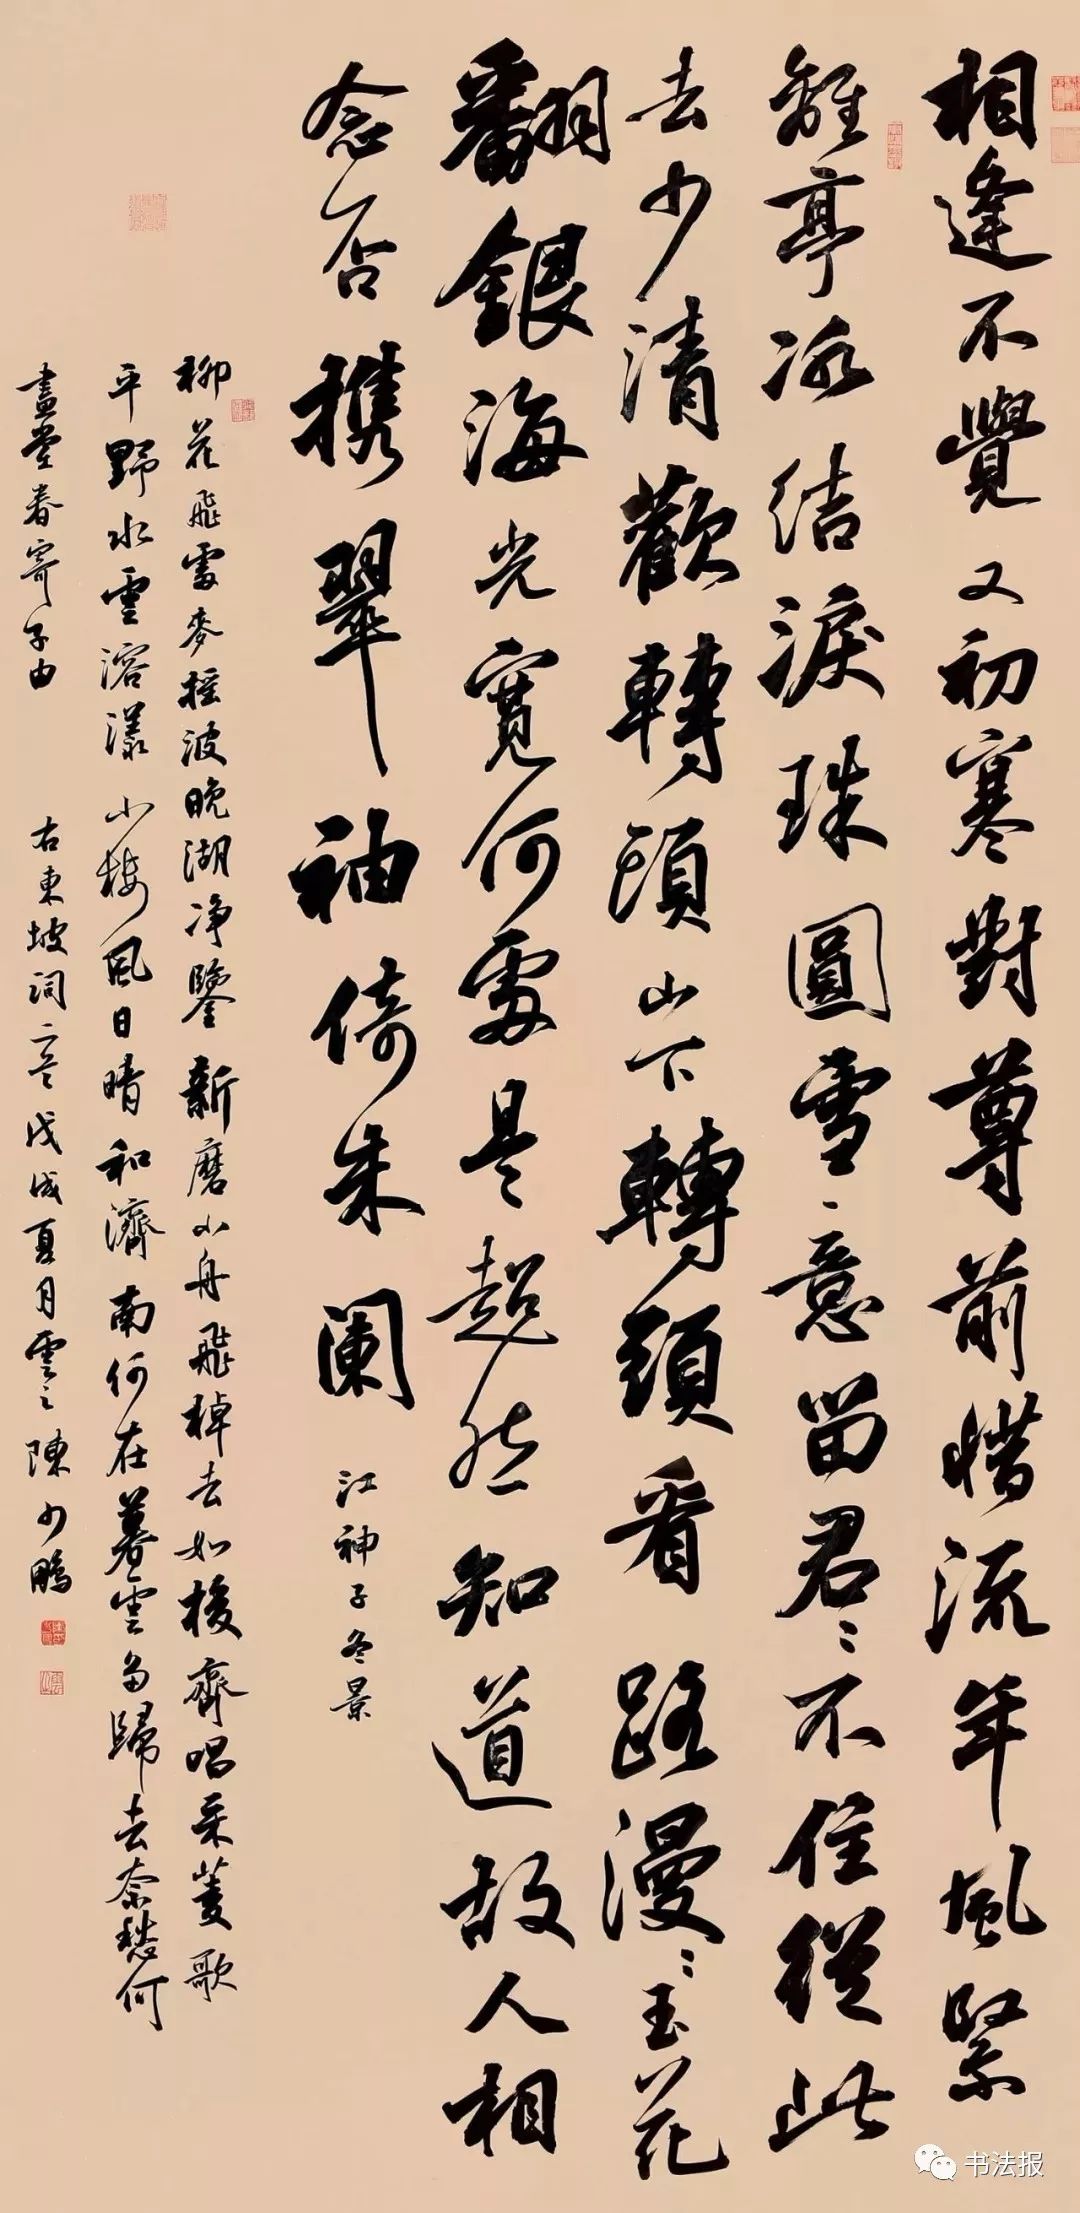 相逢不覺又初寒對尊前惜流年風緊
離亭冰結淚珠圓雪〻意留君〻不住從此
去少清歡轉頭山下轉頭看路漫〻玉花
翻銀海光寬何處是超然知道故人相
念否携翠袖倚朱闌
江神子冬景
柳花飛處麥搖波晚湖净鑒新磨小舟飛棹去如梭齊唱采菱歌
平野水雲溶漾小樓風日晴和濟南何在暮雲多歸去奈愁何
畫堂春寄子由
右東坡詞二首戊戌夏月雲之陳少鵬
书法报